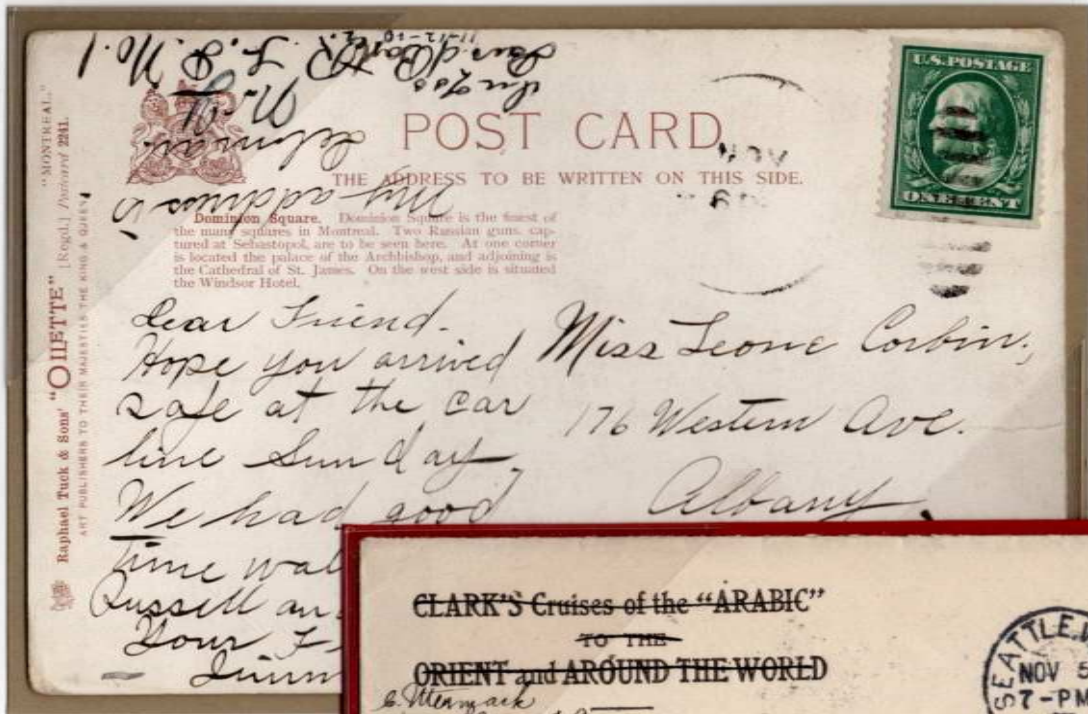 "MONTREAL."
Raphael Tuck & Sons' "OILETTE" [Regd.] Postcard 2241.
ART PUBLISHERS TO THEIR MAJESTIES THE KING & QUEEN.
My address is
Delmar.
N.Y.
R. F. D. No. 1
11-12-10
POST CARD
THE ADDRESS TO BE WRITTEN ON THIS SIDE.
U.S. POSTAGE
ONE CENT
NOV
Dominion Square. Dominion Square is the finest of
the many squares in Montreal. Two Russian guns, cap-
tured at Sebastopol, are to be seen here. At one corner
is located the palace of the Archbishop, and adjoining is
the Cathedral of St. James. On the west side is situated
the Windsor Hotel.
Dear Friend.
Hope you arrived
safe at the car
line Sunday.
We had good
time wal
Russell an
Your F
Miss Leone Corbin,
176 Western Ave.
Albany,
CLARK'S Cruises of the "ARABIC"
TO THE
ORIENT and AROUND THE WORLD
SEATTLE, W
NOV 5
7-PM